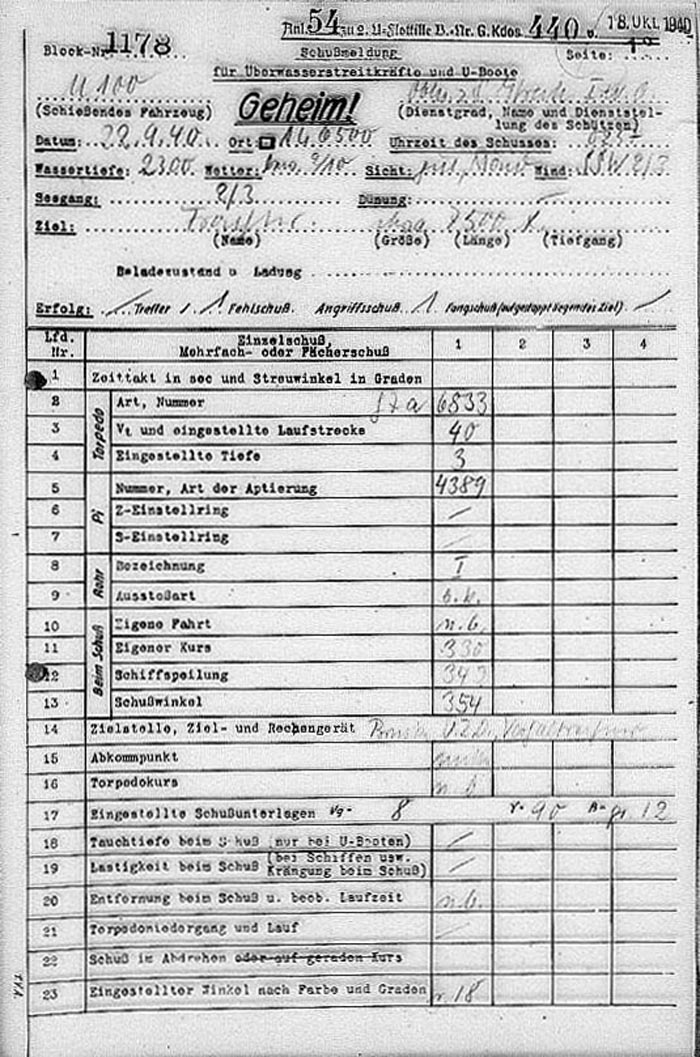 Anl. 54 zu 2. U-Flottille B.-Nr. G. Kdos 440 v. 18. Okt. 1940
Block-Nr. 1178
Schußmeldung
Seite:
für Überwasserstreitkräfte und U-Boote
U 100
Geheim!
(Schießendes Fahrzeug)
(Dienstgrad, Name und Dienststel-
lung des Schützen)
Datum: 22.9.40. Ort: Uhrzeit des Schusses:
Wassertiefe: 2300 Wetter: 9/10 Sicht: gut, Mond Wind: 2/3
Seegang: 2/3 Dünung: —
Ziel:
(Name) (Größe) (Länge) (Tiefgang)
Beladezustand u Ladung
Erfolg: / Treffer / 1 Fehlschuß. Angriffsschuß 1 Fangschuß (auf gestoppt liegendes Ziel) /
Lfd. Nr. Einzelschuß, Mehrfach- oder Fächerschuß 1 2 3 4
1 Zeittakt in sec und Streuwinkel in Graden
Torpedo
2 Art, Number G7a 6833
3 Vt und eingestellte Laufstrecke 40
4 Eingestellte Tiefe 3
Pi
5 Nummer, Art der Aptierung 4389
6 Z-Einstellring /
7 S-Einstellring /
Rohr
8 Bezeichnung I
9 Ausstoßart
Beim Schuß
10 Eigene Fahrt n.b.
11 Eigener Kurs 330
12 Schiffspeilung
13 Schußwinkel 354
14 Zielstelle, Ziel- und Rechengerät
15 Abkommpunkt
16 Torpedokurs n.b.
17 Eingestellte Schußunterlagen Vg- 8 γ- 90 B- gr 12
18 Tauchtiefe beim Schuß (nur bei U-Booten) /
19 Lastigkeit beim Schuß (bei Schiffen usw. Krängung beim Schuß) /
20 Entfernung beim Schuß u. beob. Laufzeit n.b.
21 Torpedoniedergang und Lauf /
22 Schuß im Abdrehen oder auf geraden Kurs
23 Eingestellter Winkel nach Farbe und Graden r. 18